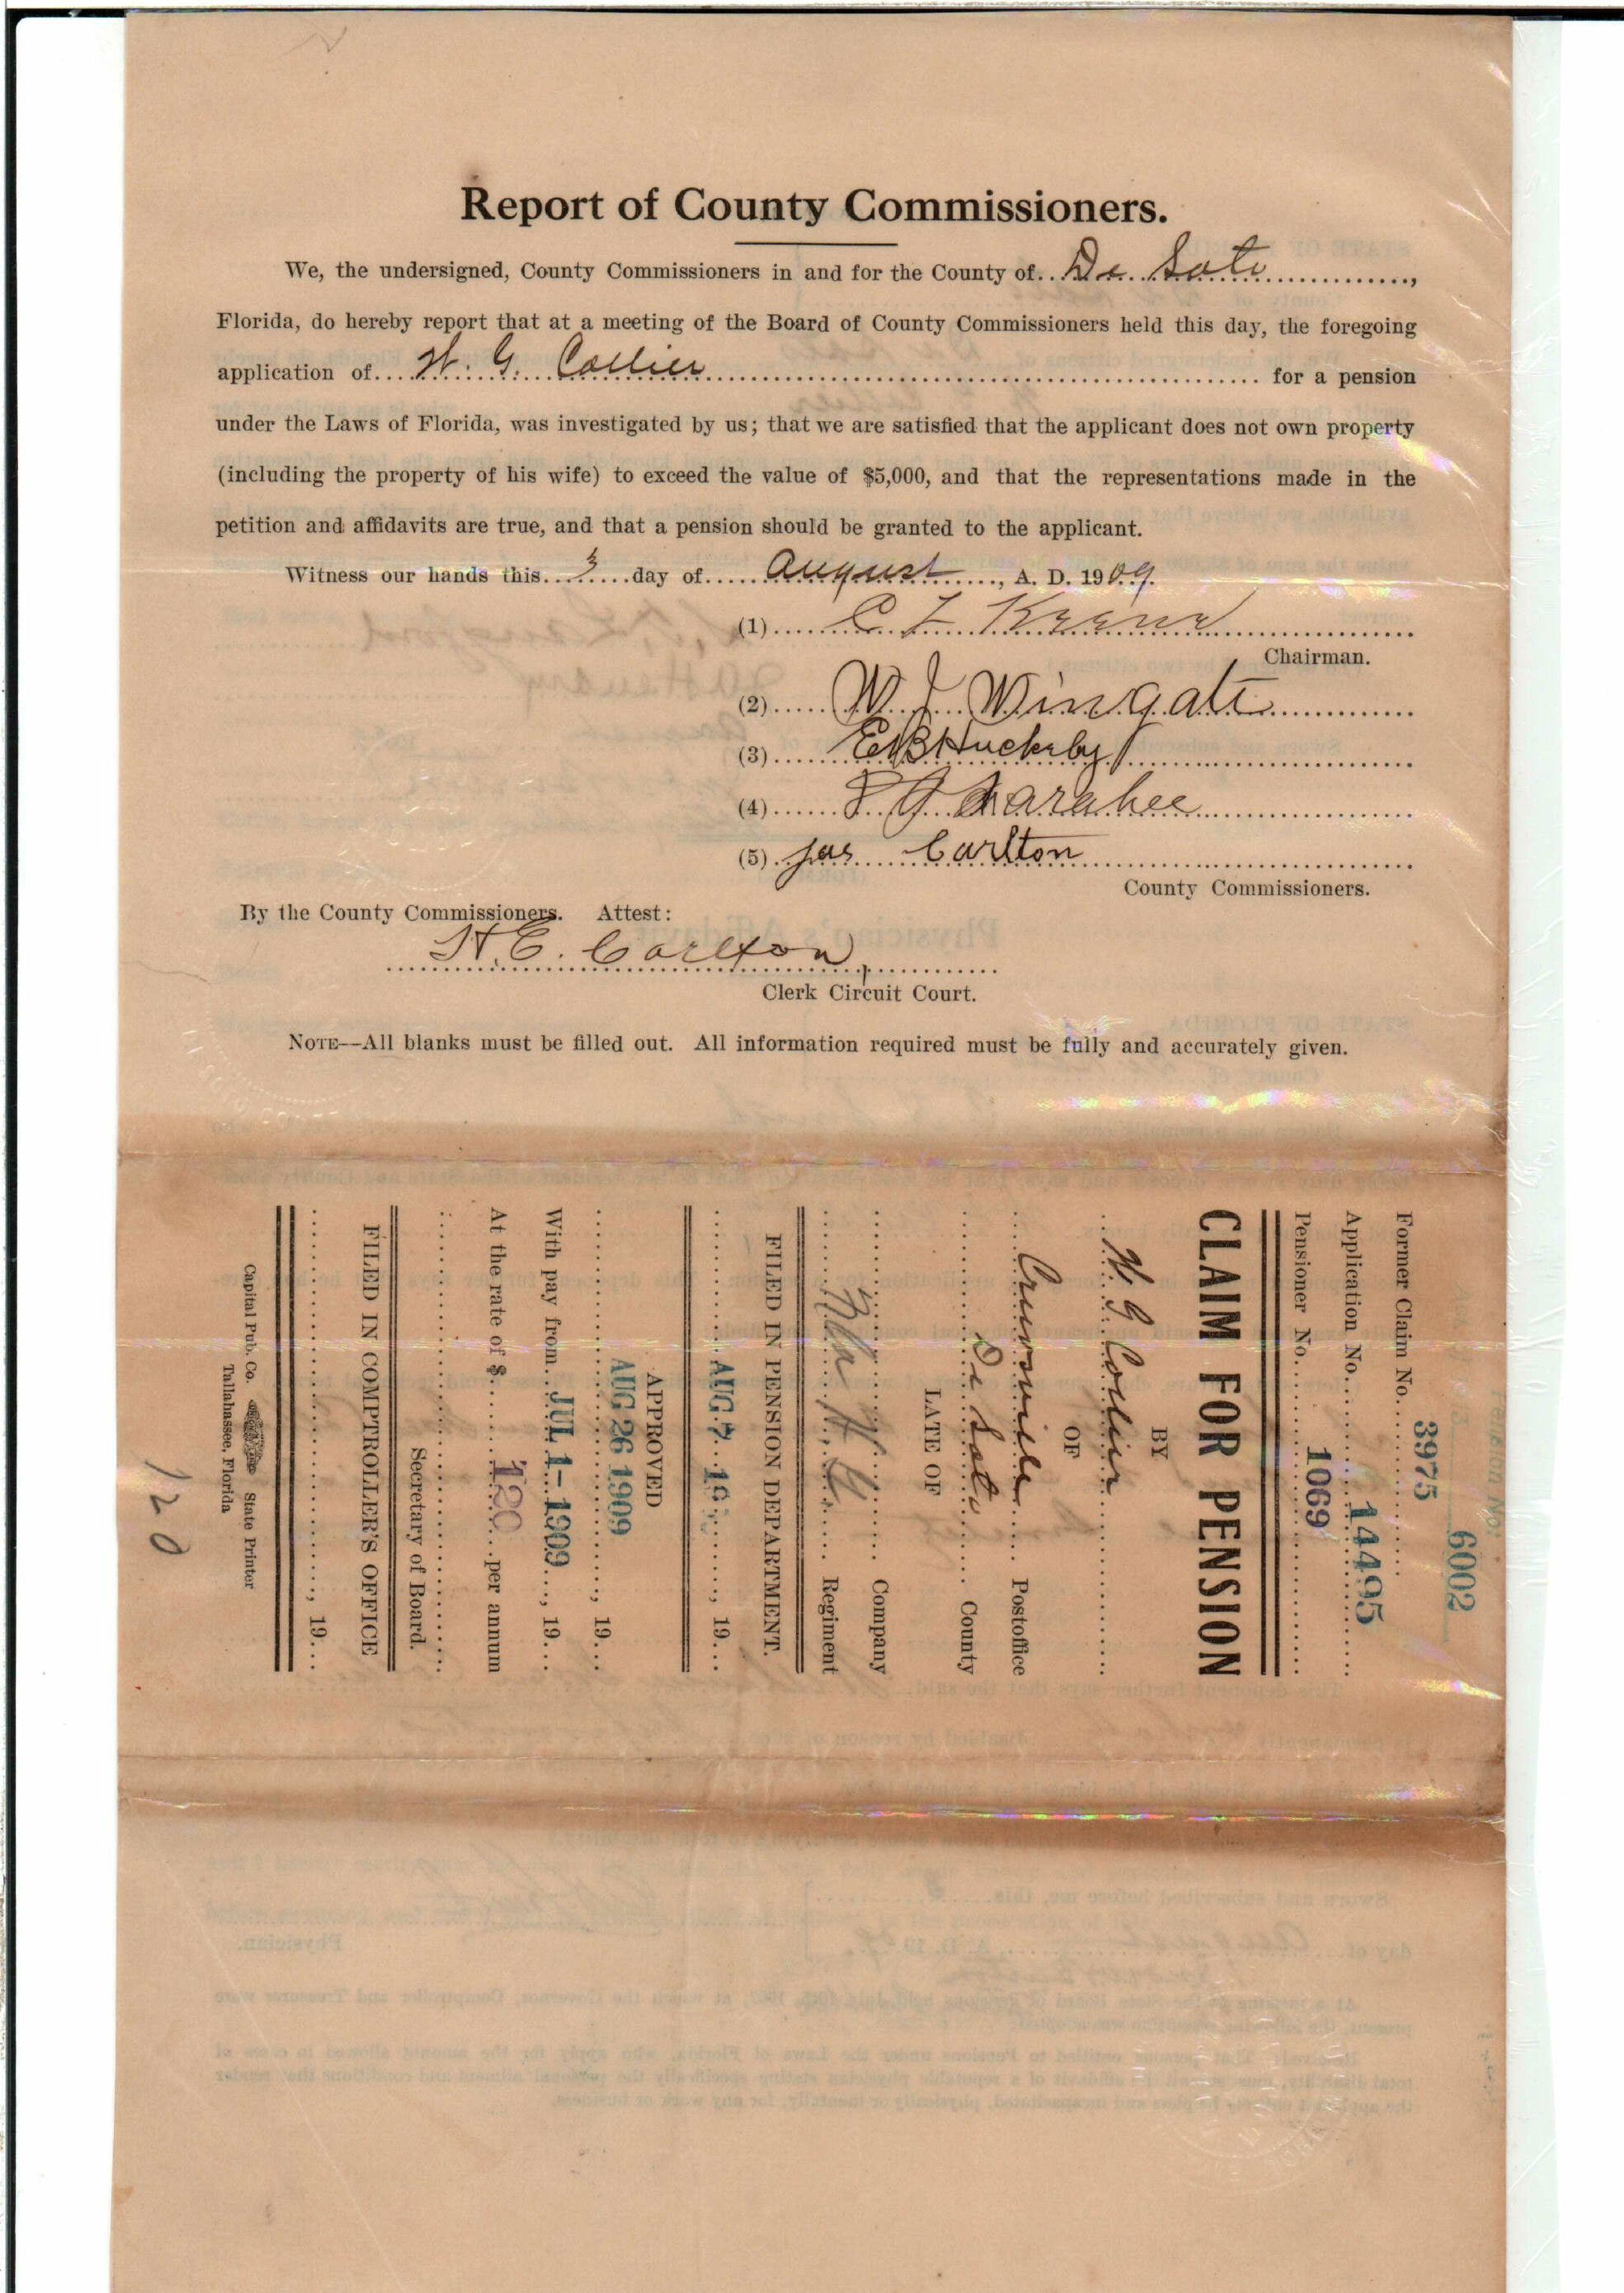 Report of County Commissioners.
We, the undersigned, County Commissioners in and for the County of.. De Soto ..............,
Florida, do hereby report that at a meeting of the Board of County Commissioners held this day, the foregoing
application of.... W. G. Collier .................... for a pension
under the Laws of Florida, was investigated by us; that we are satisfied that the applicant does not own property
(including the property of his wife) to exceed the value of $5,000, and that the representations made in the
petition and affidavits are true, and that a pension should be granted to the applicant.
Witness our hands this... 3 ....day of...... August ......, A. D. 1909.
(1)
Chairman.
(2)..... W. J. Wingate
(3)....... E B Huckeby
(4)
(5). Jas Carlton
County Commissioners.
By the County Commissioners. Attest:
H. E. Carlton,
Clerk Circuit Court.
NOTE—All blanks must be filled out. All information required must be fully and accurately given.
6002
Former Claim No. 3975
Application No. 14495
Pensioner No. 1069
CLAIM FOR PENSION
BY
W. G. Collier
OF
Postoffice
De Soto County
LATE OF
Company
Regiment
FILED IN PENSION DEPARTMENT.
AUG 7 19 , 19...
APPROVED
AUG 26 1909 , 19...
With pay from... JUL 1-1909 ..., 19...
At the rate of $ 120 per annum
Secretary of Board.
FILED IN COMPTROLLER'S OFFICE
, 19...
Capital Pub. Co. State Printer
Tallahassee, Florida
120